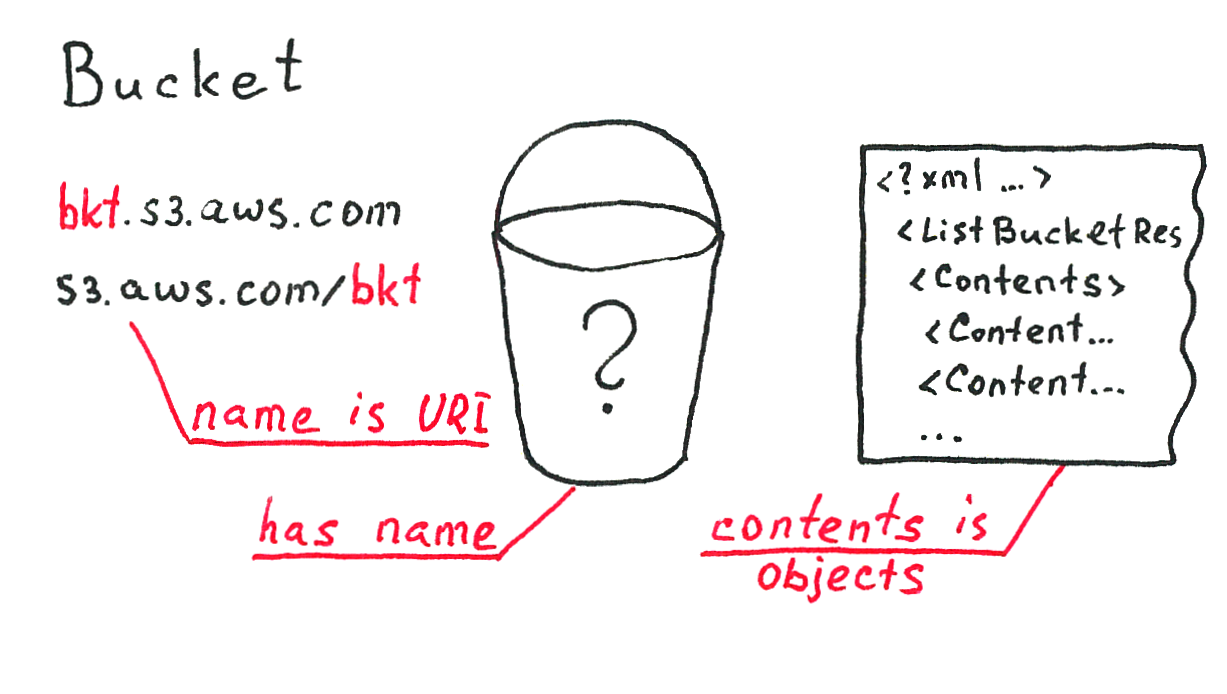 Bucket
bkt.s3.aws.com
s3.aws.com/bkt
name is URI
has name
?
<?xml ...>
<ListBucketRes
<Contents>
<Content...
<Content...
...
contents is
objects